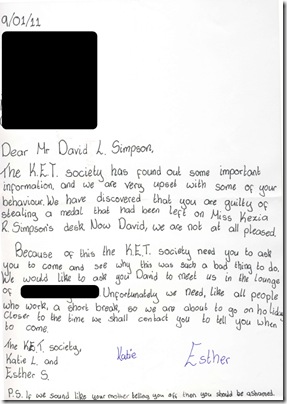 9/01/11
Dear Mr David L. Simpson,
The K.E.T. society has found out some important
information, and we are very upset with some of your
behaviour. We have discovered that you are guilty of
stealing a medal that had been left on Miss Kezia
R. Simpson's desk. Now David, we are not at all pleased.
Because of this the K.E.T. society need you to ask
you to come and see why this was such a bad thing to do.
We would like to ask you David to meet us in the lounge
of
Unfortunately we need, like all people
who work, a short break, so we are about to go on holiday
Closer to the time we shall contact you to tell you when
to come.
The K.E.T. society,
Katie L. and
Esther S.
Katie
Esther
P.S. If we sound like your mother telling you off then you should be ashamed.